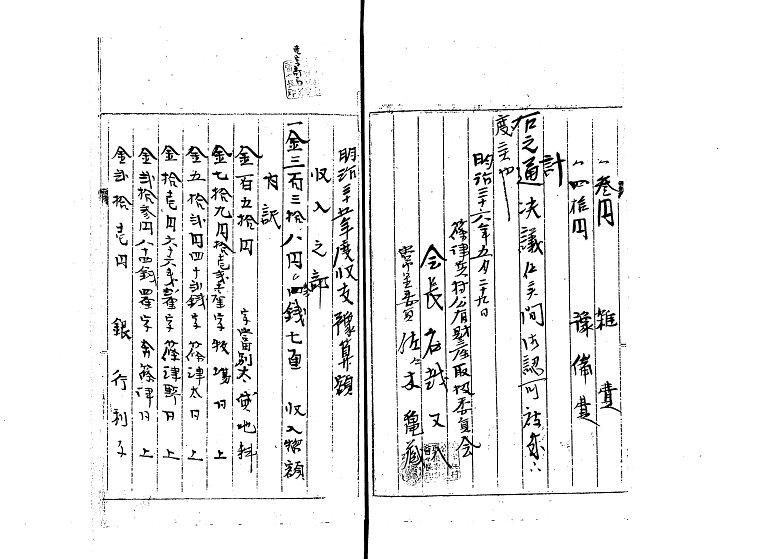 一 参円 雑費
一 四拾円 豫備費
計
右之通決議仕候間御認可被成
度候也
明治三十六年五月二十九日
篠津兵村公有財産取扱委員会
会長 石越又
常置委員 佐々木亀蔵
明治三十五年度収支豫算額
収入之部
一金三百三拾八円四銭七厘 収入総額
内訳
金百五拾円 字当別太貸地料
金七拾九円 字牧場 同上
金五拾弐円四十 銭 字篠津太 同上
金拾壱円六十六銭 厘 字篠津野 同上
金弐拾参円八十四銭四厘 字奔篠津 同上
金弐拾壱円 銀行利子